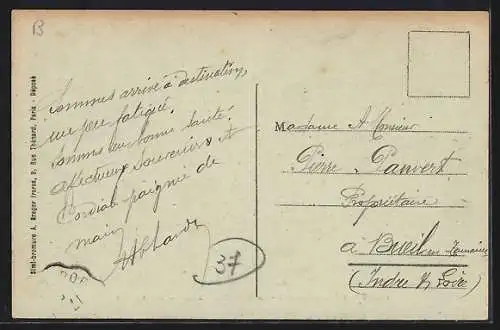 B
Simi-bromure A. Breger Frères, 9, Rue Thénard, Paris - Déposé
Sommes arrivé à destination,
un peu fatigué.
Sommes en bonne santé.
affectueux souvenirs et
Cordial poignée de
main
37
Madame & Monsieur
Pierre Panvert
Propriétaire
à Bueil en Touraine
(Indre & Loire)